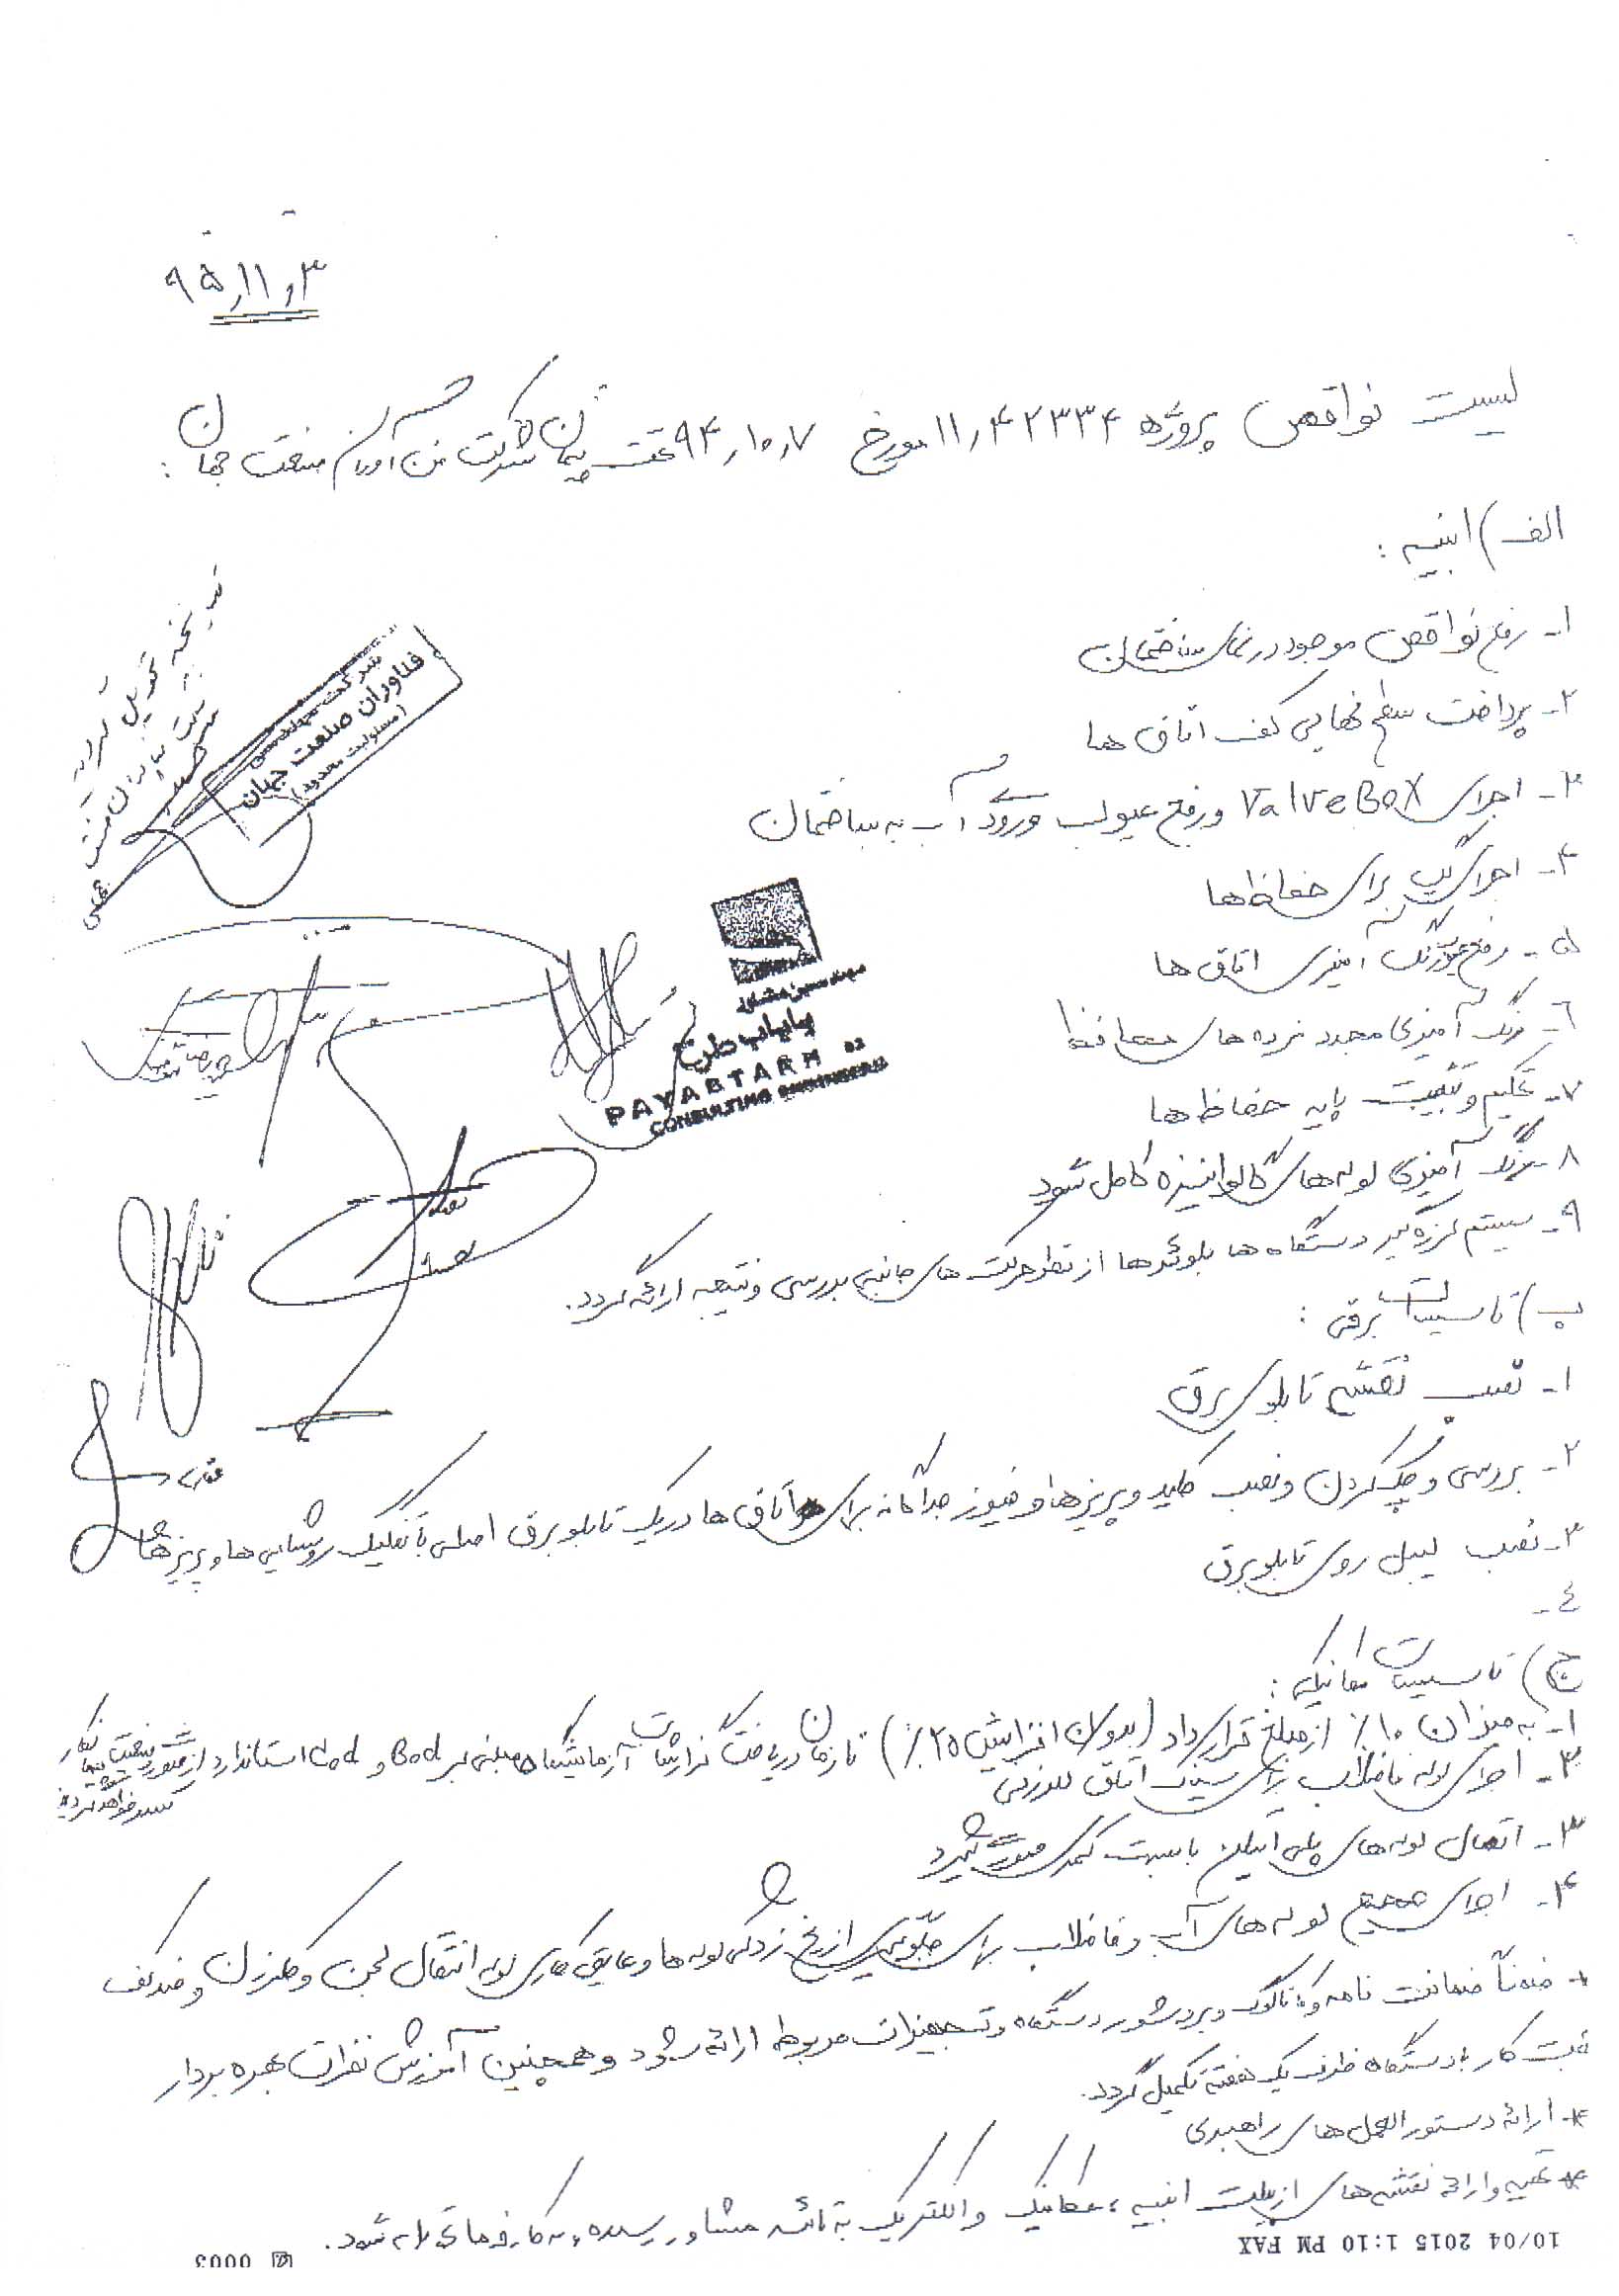 ۹۵,۱۱,۳
لیست نواقص پروژه ۱۱,۴۲۳۳۴ مورخ ۹۴,۱۰,۷ تحت پیمان شرکت فن آوران صنعت جهان :
الف) ابنیه :
۱- رفع نواقص موجود در نمای ساختمان
۲- پرداخت سطح نهایی کف اتاق ها
۳- اجرای Valve Box و رفع عیوب ورود آب به ساختمان
۴- اجرای برای حفاظ ها
۵- رفع عیوب رنگ آمیزی اتاق ها
۶- رنگ آمیزی مجدد نرده های محافظ
۷- تحکیم و تثبیت پایه حفاظ ها
۸- رنگ آمیزی لوله های گالوانیزه کامل شود
۹- سیستم لرزه گیر دستگاه ها بلوئرها از نظر حرکت های جانبی بررسی و نتیجه ارائه گردد.
ب) تاسیسات برقی :
۱- نصب نقشه تابلوی برق
۲- بررسی و چک کردن و نصب کلید و پریزها و فیوز جداگانه برای اتاق ها در یک تابلو برق اصلی با تفکیک روشنایی ها و پریزها
۳- نصب لیبل روی تابلو برق
٤-
ج) تاسیسات مکانیکی :
۱- به میزان ۱۰٪ از مبلغ قرارداد (بدون افزایش ۲۵٪) تا زمان دریافت گزارشات آزمایشگاه مبنی بر Bod و Cod استاندارد از
کسر خواهد گردید
۲- اجرای لوله فاضلاب برای سینک اتاق کلرزنی
۳- اتصال لوله های پلی اتیلن با بست کمری صورت گیرد
۴- اجرای صحیح لوله های آب و فاضلاب برای جلوگیری از یخ زدگی لوله ها و عایق کاری لوله انتقال لجن و کلرزن و ضد کف
* ضمناً ضمانت نامه و کاتالوگ و بروشور دستگاه و تجهیزات مربوطه ارائه شود و همچنین آموزش نفرات بهره بردار
جهت کار با دستگاه ظرف یک هفته تکمیل گردد.
* ارائه دستورالعمل های راهبری
* تهیه و ارائه نقشه های ازبیلت ابنیه ، مکانیک و الکتریک به تائید مشاور رسیده و به کارفرما ارائه شود.
شرکت مهندسی
فناوران صنعت جهان
(مسئولیت محدود)
مهندسین مشاور
پایاب طرح
PAYABTARH
CONSULTING ENGINEERS
10/04 2015 1:10 PM FAX
0003